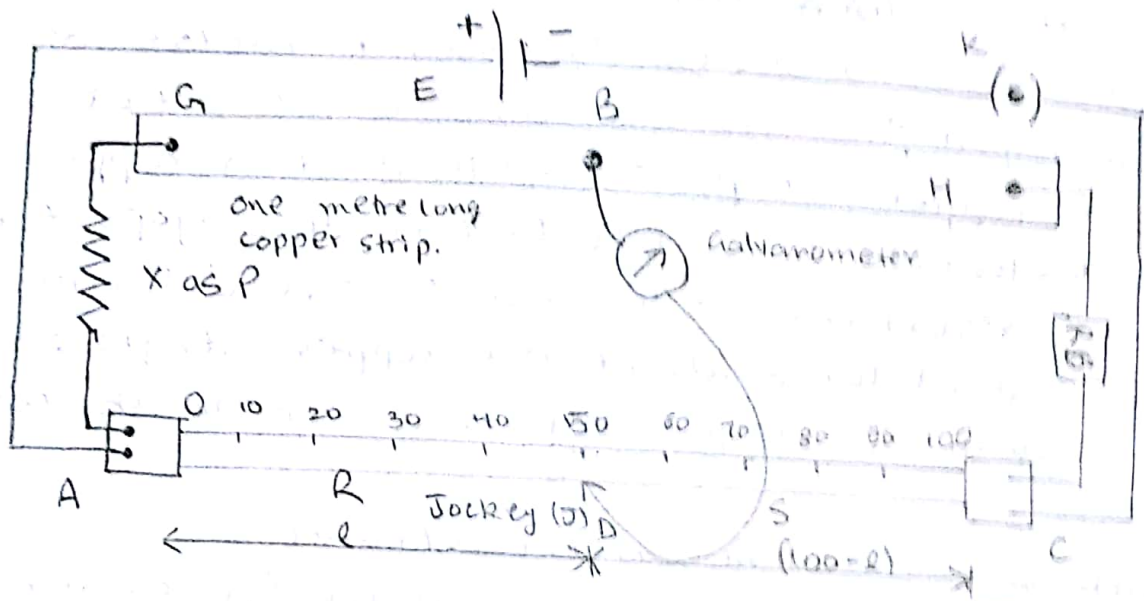 + -
K
G E B
H
one metre long
copper strip.
Galvanometer
X as P
0 10 20 30 40 50 60 70 80 90 100
A R Jockey (J) D S C
l (100-l)